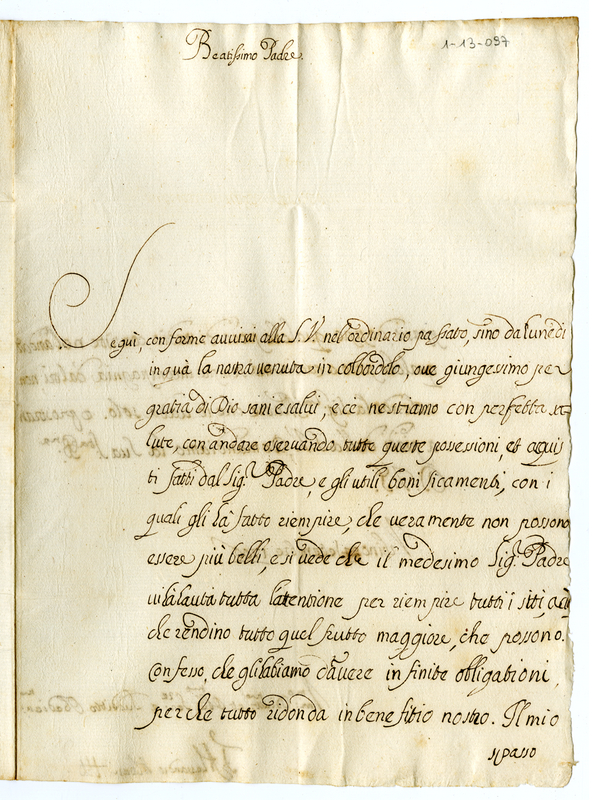 Beatissimo Padre.
1-13-097
Seguì, conforme avvisai alla S.V. nel ordinario passato, sino da lunedi
in quà la nostra venuta in colbordolo, ove giungessimo per
gratia di Dio sani e salvi, e ce ne stiamo con perfetta sa-
lute, con andare oservando tutte queste possessioni, et aquis
ti fatti dal Sig.r Padre, e gli utili bonificamenti, con i
quali gli hà fatto riempire, che veramente non possono
essere più belli, e si vede che il medesimo Sig.r Padre
vi hà hauta tutta latentione per riempire tutti i siti, acciò
che rendino tutto quel frutto maggiore, che possono.
Confesso, che gli habiamo d'avere infinite obligationi,
perche tutto ridonda in benefitio nostro. Il mio
spasso